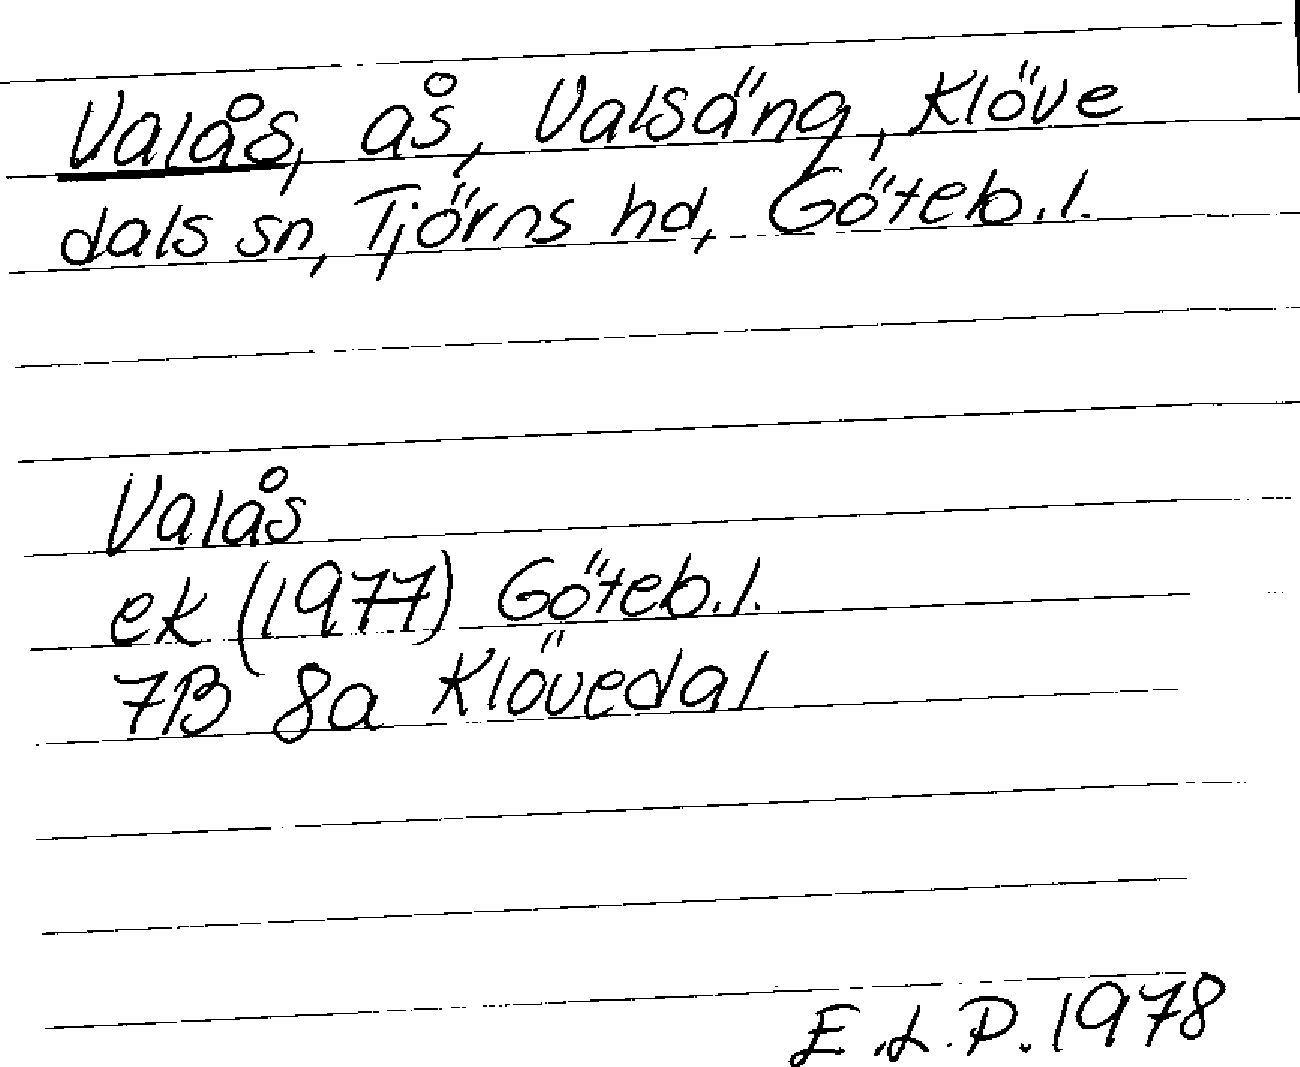 Valås, ås, Valsäng, Klöve
dals sn, Tjörns hd, Göteb.l.
Valås
ek (1977) Göteb.l.
7B 8a Klövedal
E.L.P. 1978